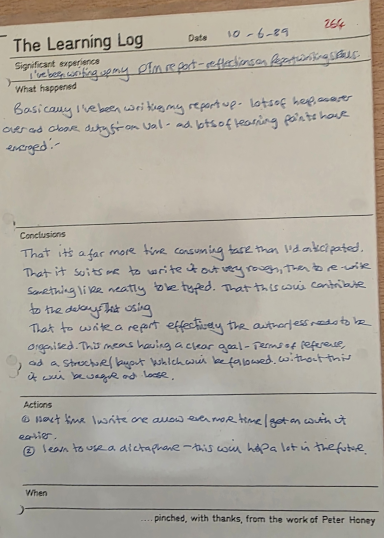 264
The Learning Log Date 10-6-89
Significant experience
I've been writing up my report - reflections on Report writing skills.
What happened
Basically I've been writing my report up - lots of help, over
over and above duty from Val - and lots of learning points have
emerged:-
Conclusions
That it's a far more time consuming task than I'd anticipated.
That it suits me to write it out very rough, then to re-write
something like neatly to be typed. That this will contribute
to the delays using
That to write a report effectively the author needs to be
organised. This means having a clear goal - terms of reference,
and a structure/layout which will be followed. Without this
it will be vague and loose.
Actions
① Next time I write one allow even more time/get on with it
earlier.
② learn to use a dictaphone - this will help a lot in the future.
When
....pinched, with thanks, from the work of Peter Honey